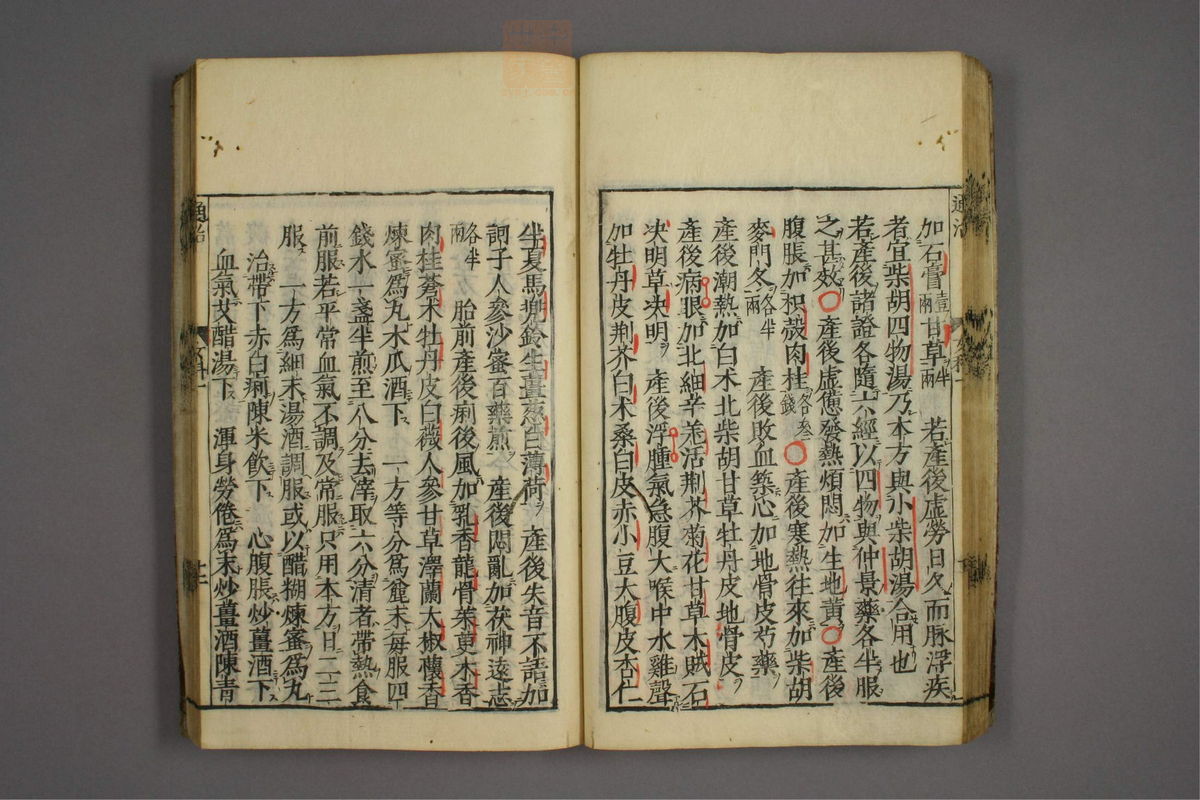 加石膏壹兩甘草半兩　若產後虛勞日久而脉浮疾
者宜柴胡四物湯乃本方與小柴胡湯合用也
若產後諸證各隨六經以四物與仲景藥各半服
之甚效〇產後虛憊發熱煩悶加生地黃〇產後
腹脹加枳殼肉桂各叁錢〇產後寒熱往來加柴胡
麥門冬各半兩　產後敗血築心加地骨皮芍藥
產後潮熱加白朮北柴胡甘草牡丹皮地骨皮
產後病眼加北細辛羌活荆芥菊花甘草木賊石
决明草决明　產後浮腫氣急腹大喉中水雞聲
加牡丹皮荆芥白朮桑白皮赤小豆大腹皮杏仁
半夏馬兜鈴生薑葱白薄荷　產後失音不語加
訶子人參沙蜜百藥煎　產後悶亂加茯神遠志
各半兩　胎前產後痢後風加乳香龍骨茱萸木香
肉桂蒼朮牡丹皮白薇人參甘草澤蘭大椒茴香
煉蜜爲丸木瓜酒下　一方等分爲麄末每服四
錢水一盞半煎至八分去滓取六分清者帶熱食
前服若平常血氣不調及常服只用本方日二三
服　一方爲細末湯酒調服或以醋糊煉蜜爲丸
治帶下赤白痢陳米飲下　心腹脹炒薑酒下
血氣艾醋湯下　渾身勞倦爲末炒薑酒陳青
通治
通治